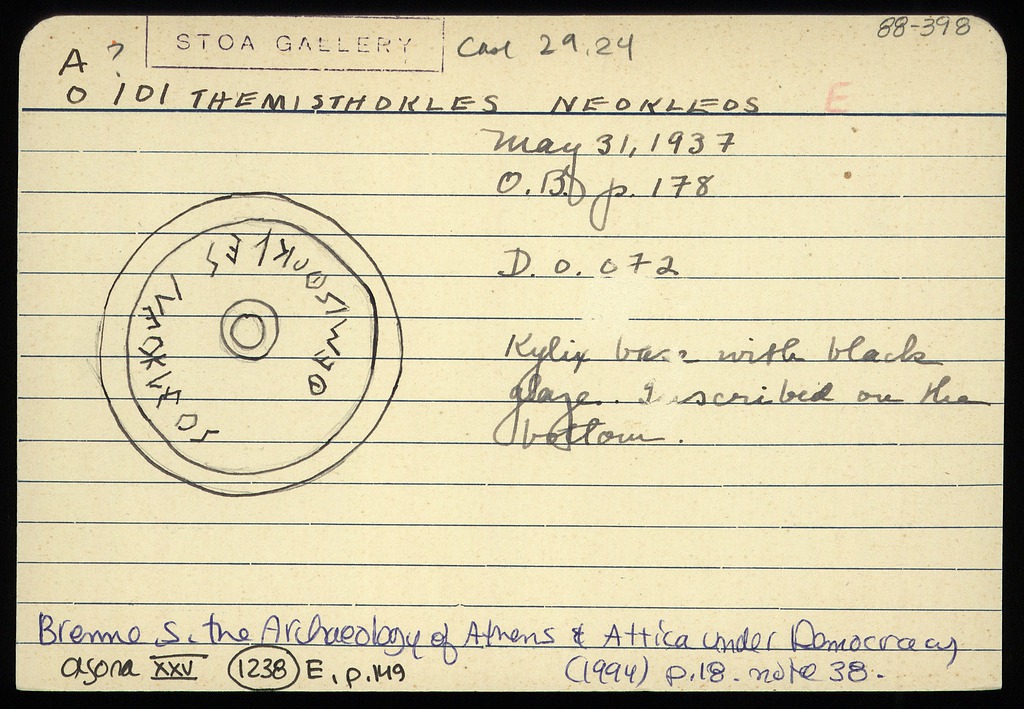 88-398
STOA GALLERY Case 29.24
A ?
O 101 THEMISTHOKLES NEOKLEOS E
May 31, 1937
O.B. p. 178
D. 0. 072
Kylix base with black
glaze. Inscribed on the
bottom.
Brenne S. the Archaeology of Athens & Attica under Democracy
Agora XXV 1238 E, p.149 (1994) p.18. note 38.